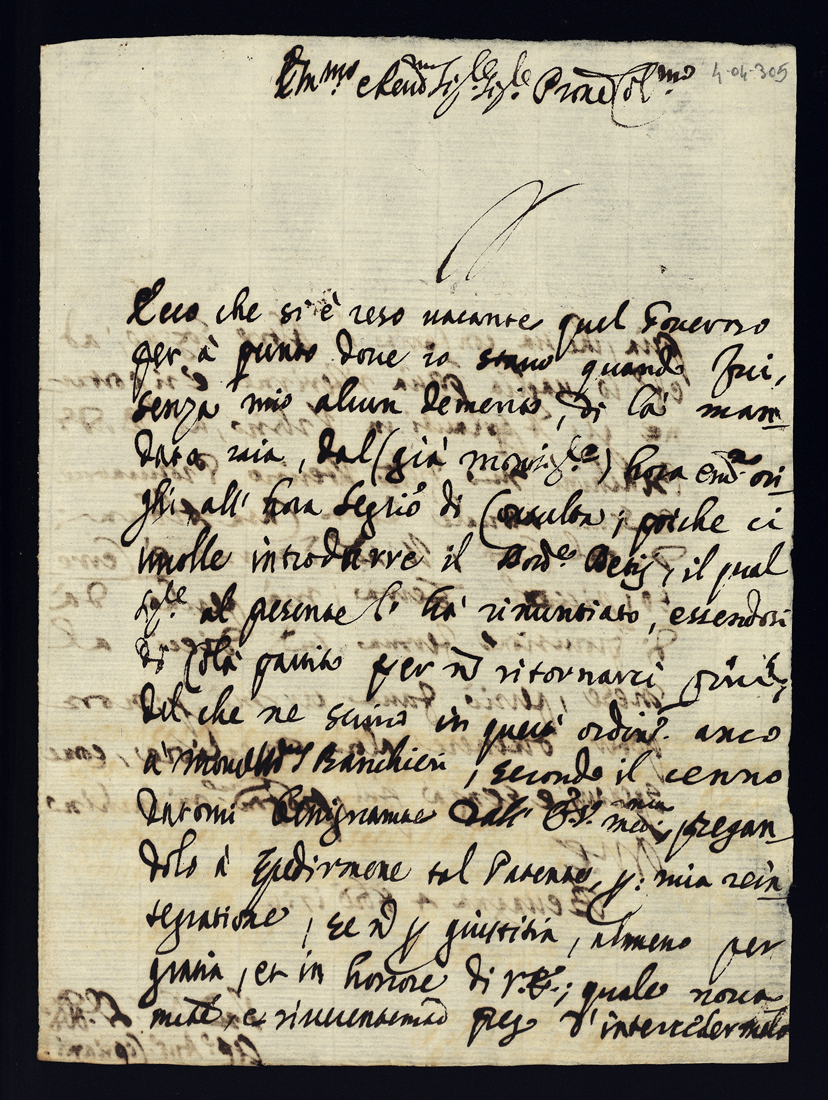 Em.mo e Rend.mo Sig.re Sig.re Prone Col.mo
4-04-305
Ecco che si è reso vacante quel Governo
per à punto dove io stavo quando fui,
senza mio alcun demerito, di là man
data via, dal (già monsig.re) hora em.o ori
ghi all' hora Segrio di Consulta; poiche ci
volle introdurre il Betij, il qual
sig.re al presente l' hà rinuntiato, essendosi
di Colà partito per nō ritornarci
del che ne scrivo in quest' ordin.o anco
à Banchieri, secondo il cenno
datomi benignamte dall' E.V. med.ma, pregan
dolo à spedirmene tal Patente, p: mia rein
tegratione, se nō p giustitia, almeno per
gratia, et in honore di V.E.; quale nova
mēte, e riverentemte d'intercedermelo